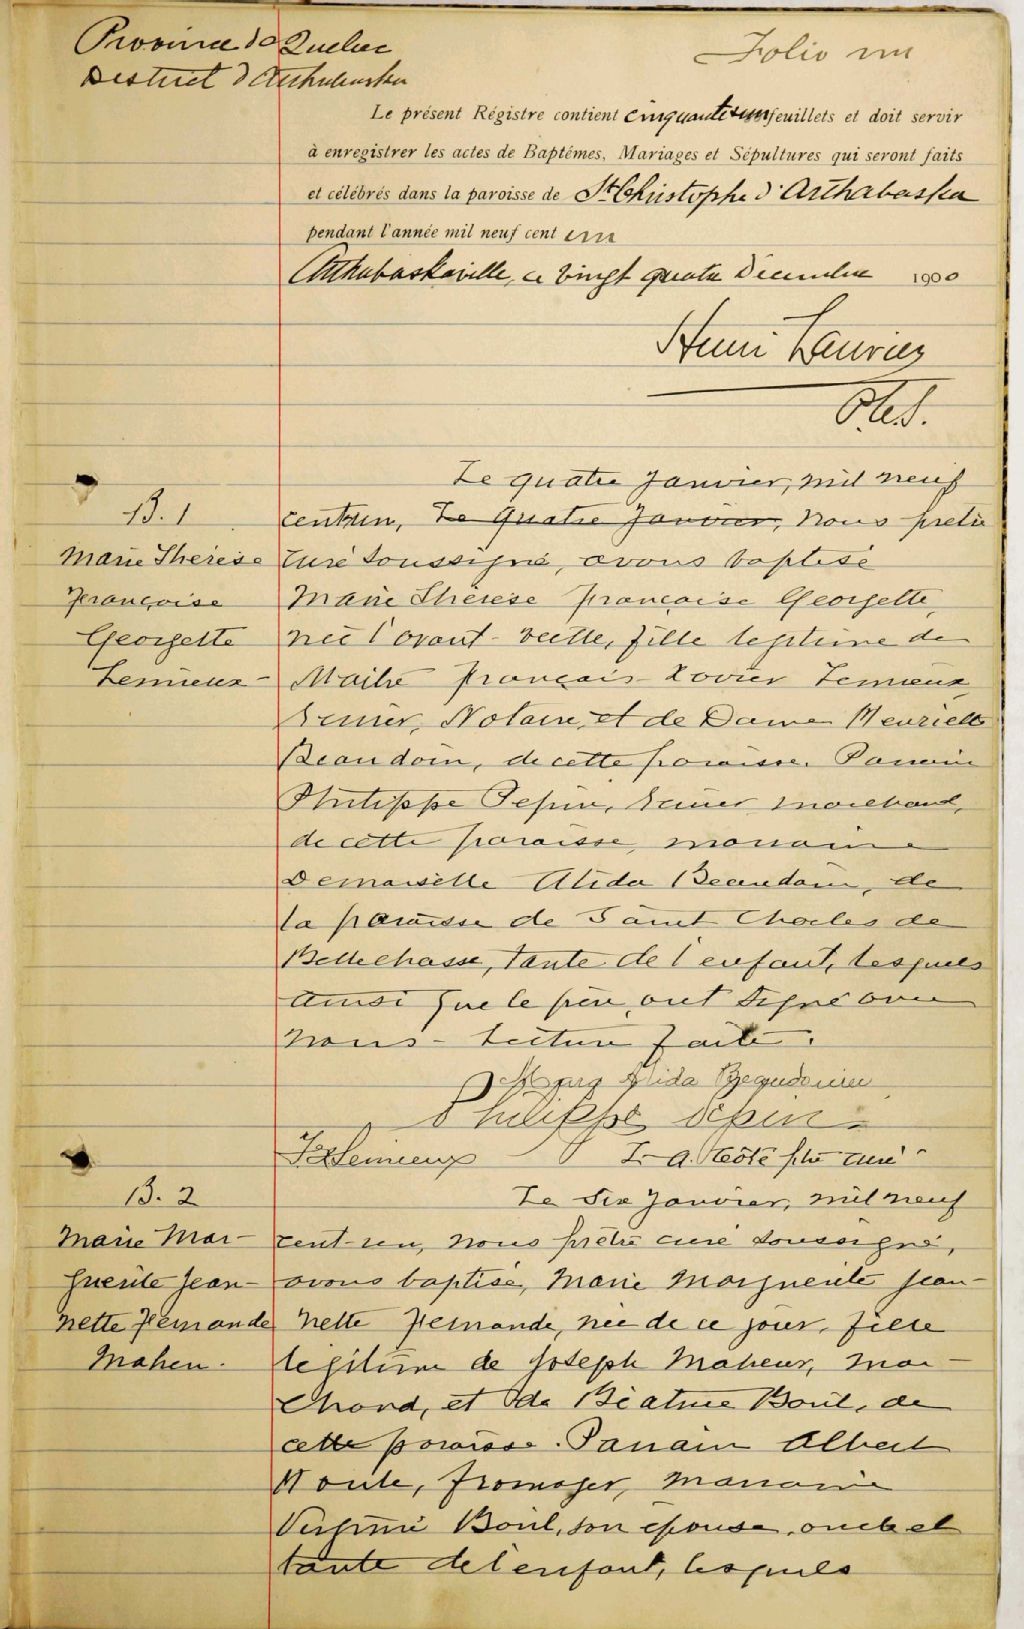 Province de Quebec
District d'Arthabaska
Folio un
Le présent Régistre contient cinquante un feuillets et doit servir
à enregistrer les actes de Baptêmes, Mariages et Sépultures qui seront faits
et célébrés dans la paroisse de St Christophe d'Arthabaska
pendant l'année mil neuf cent un
Arthabaskaville, ce vingt quatre Décembre 1900
Henri Laurier
P.C.S.
Le quatre Janvier, mil neuf
B. 1
cent-un, Le quatre Janvier, nous prêtre
Marie Thérèse
curé soussigné, avons baptisé
Françoise
Marie Thérèse Françoise Georgette,
Georgette
née l'avant-veille, fille légitime de
Lemieux
Maitre François-Xavier Lemieux,
Ecuier, Notaire, et de Dame Henriette
Beaudoin, de cette paroisse. Parrain
Philippe Pepin, Ecuier, marchand,
de cette paroisse, marraine
Demoiselle Alida Beaudoin, de
la paroisse de Saint Charles de
Bellechasse, tante de l'enfant, lesquels
ainsi que le père, ont signé avec
nous - Lecture faite.
Alida Beaudoin
Philippe Pepin.
F X Lemieux
L. A. Côté ptre curé
B. 2
Le Six Janvier, mil neuf
Marie Mar-
cent-un, nous prêtre curé soussigné,
guerite Jean-
avons baptisé, Marie Marguerite Jean-
nette Fernande
nette Fernande, née de ce jour, fille
Maheu.
légitime de Joseph Maheux, mar-
chand, et de Béatrice Boril, de
cette paroisse. Parrain Albert
Houle, fromager, marraine
Virginie Boril, son épouse, oncle et
tante de l'enfant, lesquels